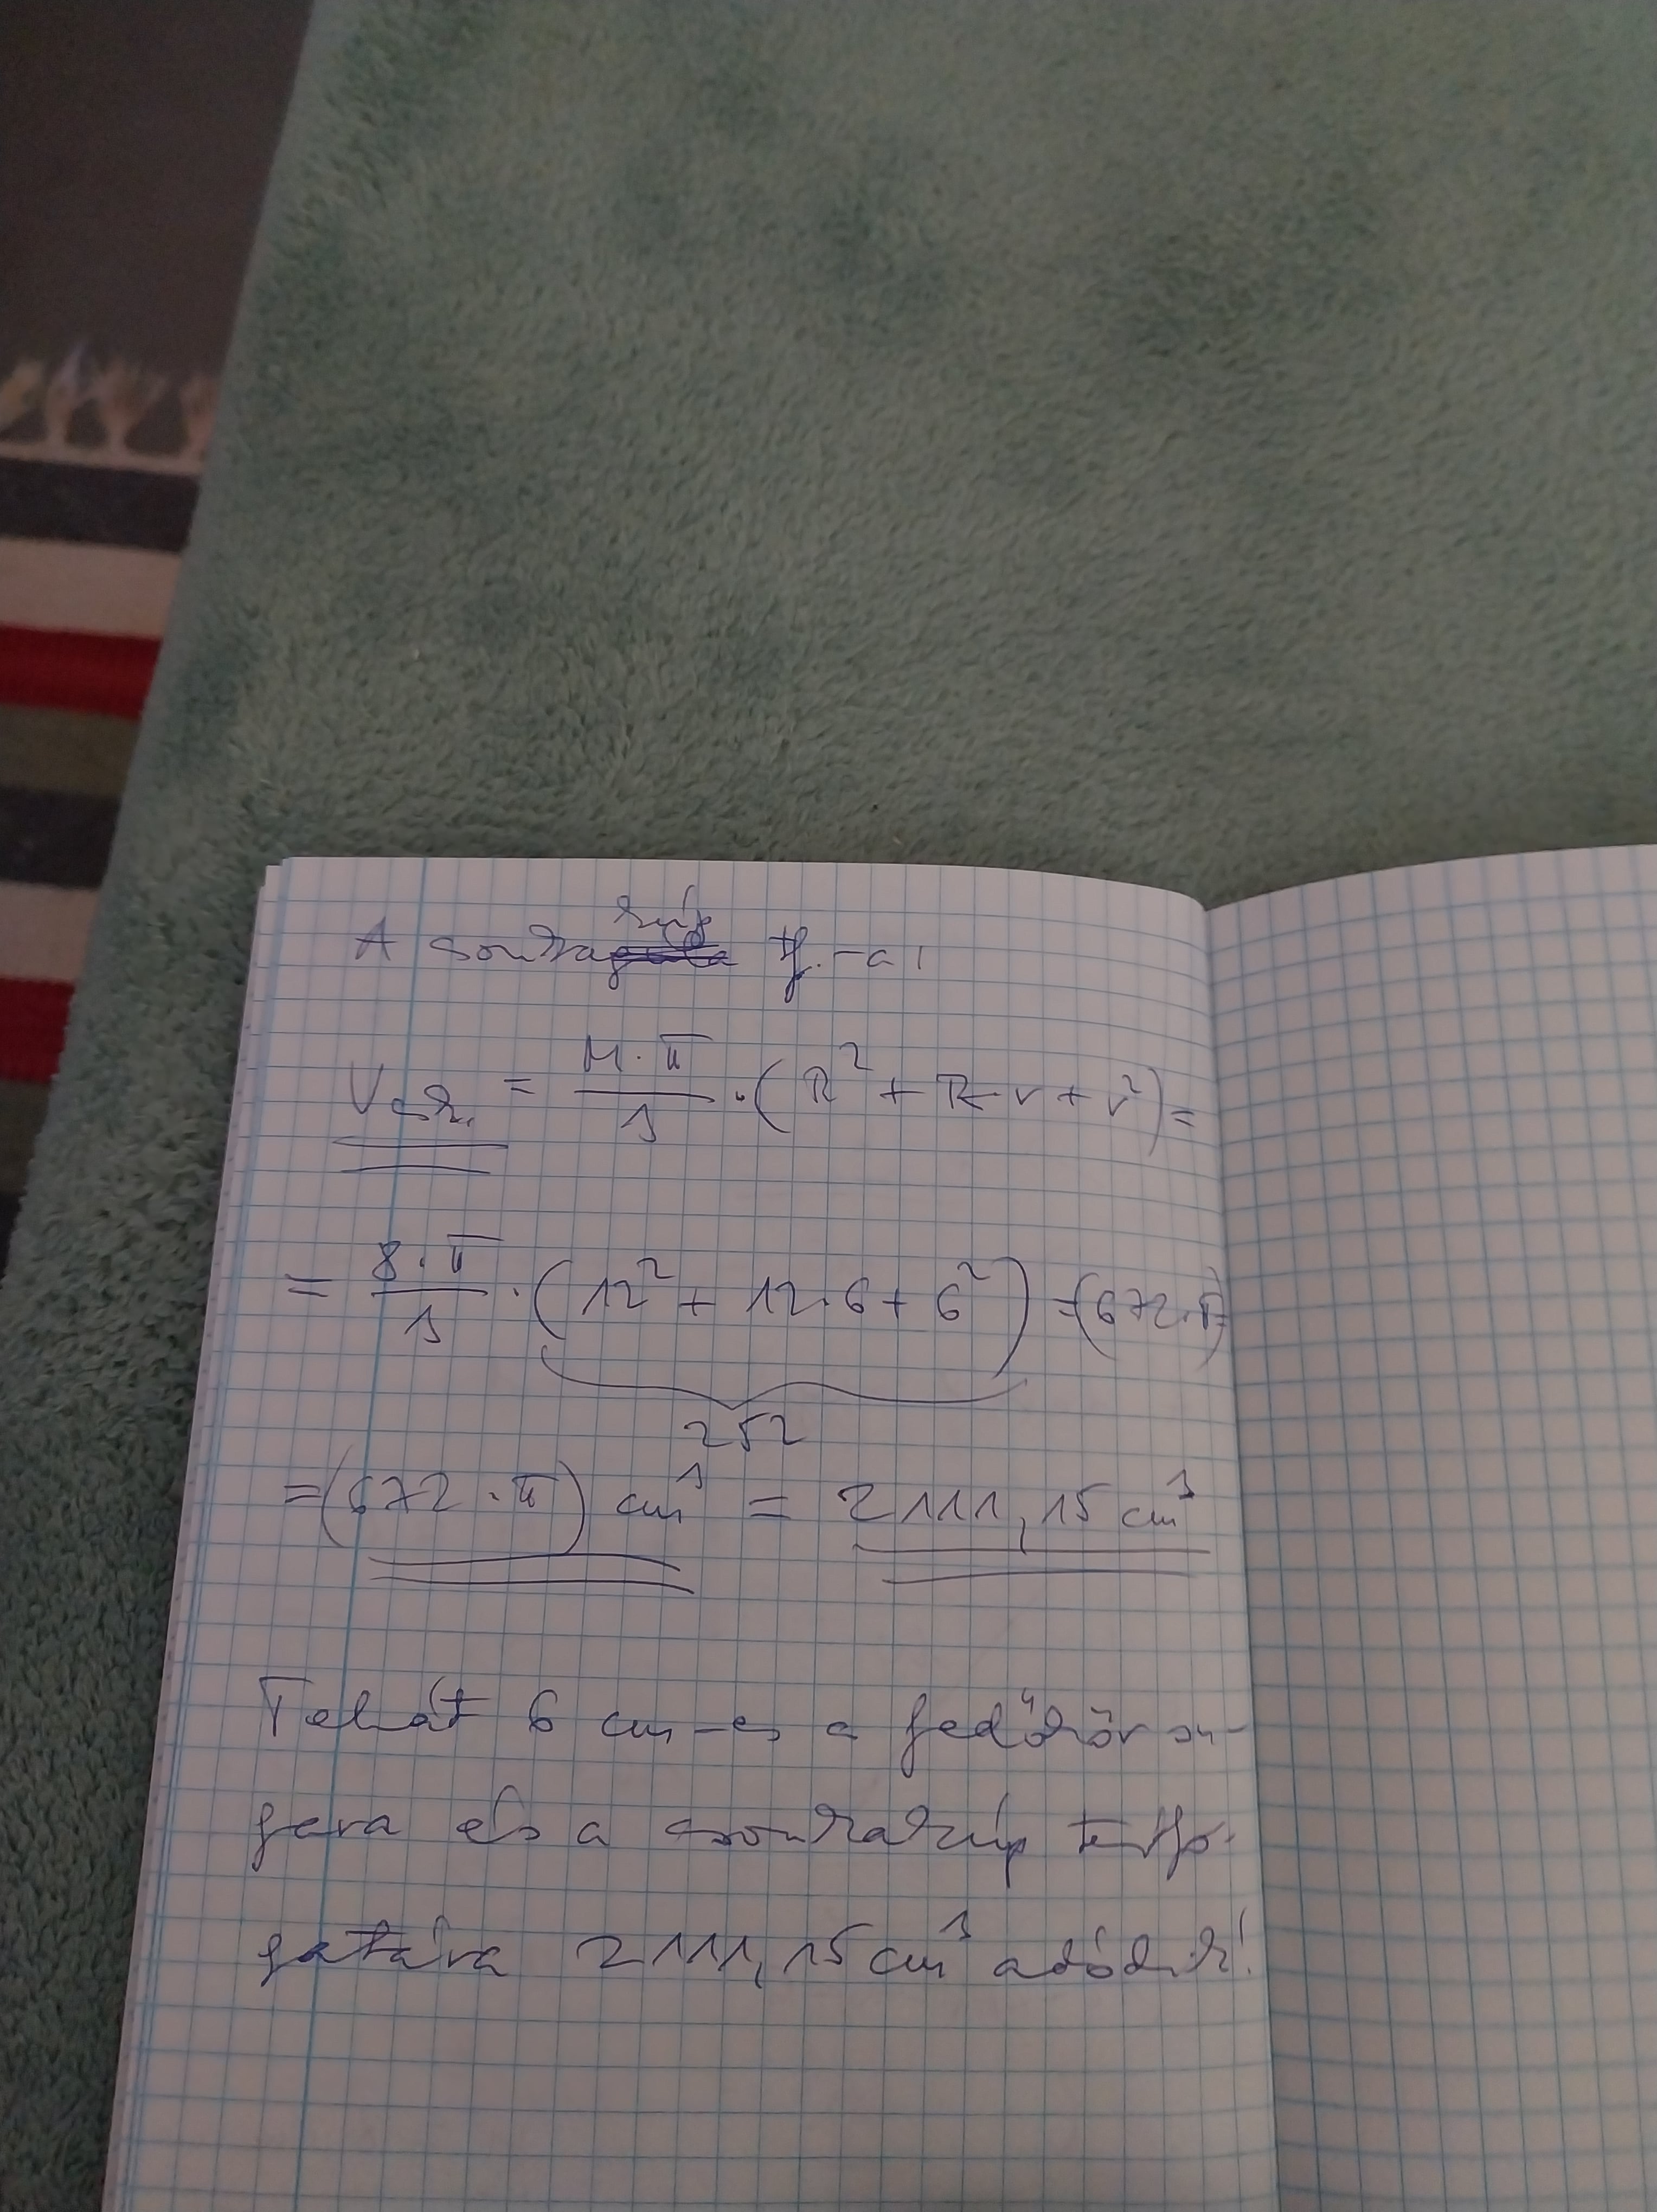 A csonkakúp tf.-a:
V cs.k. = M·π/3 · (R² + R·r + r²) =
= 8·π/3 · (12² + 12·6 + 6²) = (672·π) =
252
= (672·π) cm³ = 2111,15 cm³
Tehát 6 cm-es a fedőkör su-
gara és a csonkakúp térfo-
gatára 2111,15 cm³ adódik!